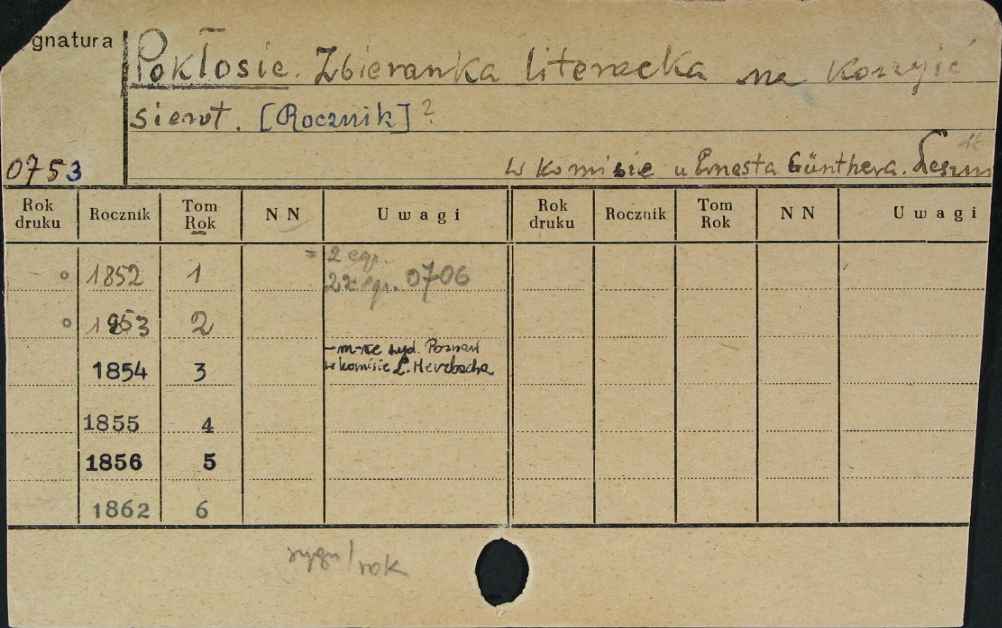 gnatura
Pokłosie. Zbieranka literacka na korzyść
sierot. [Rocznik] ?
0753 w komisie u Ernesta Günthera.
Rok druku Rocznik Tom Rok NN Uwagi Rok druku Rocznik Tom Rok NN Uwagi
= 2 egz.
1852 1 0706
1853 2
- m-ce wyd. Poznań
w komisie L. Merzbacha
1854 3
1855 4
1856 5
1862 6
sygn/rok